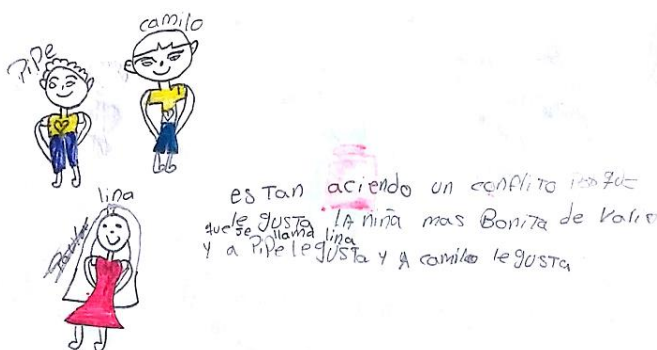 camilo
PiPe
lina
es Tan aciendo un conflito porque
le gusta lA niña mas Bonita de Vario
que se llama lina
y a PiPe le gusta y A camilo le gusta